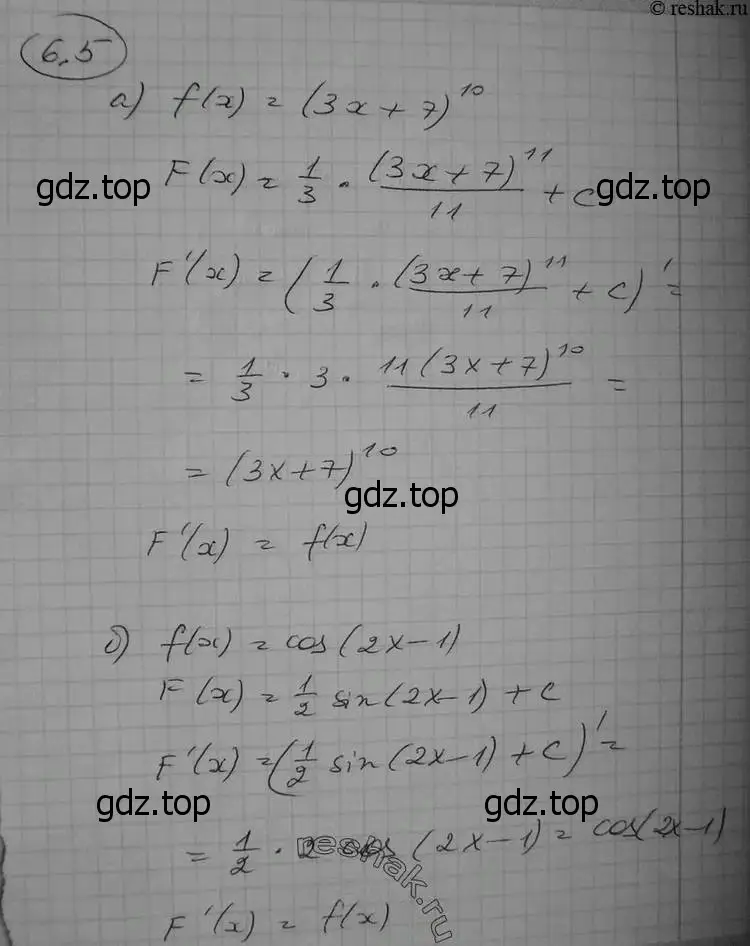 © reshak.ru
6.5
а) f(x) = (3x + 7)^10
F(x) = 1/3 · (3x + 7)^11/11 + C
gdz.top gdz.top
F'(x) = (1/3 · (3x + 7)^11/11 + C)' =
= 1/3 · 3 · 11(3x + 7)^10/11 =
= (3x + 7)^10
gdz.top
F'(x) = f(x)
б) f(x) = cos(2x - 1)
F(x) = 1/2 sin(2x - 1) + C
F'(x) = (1/2 sin(2x - 1) + C)' =
gdz.top gdz.top
= 1/2 · 2 cos(2x - 1) = cos(2x - 1)
reshak.ru
F'(x) = f(x)